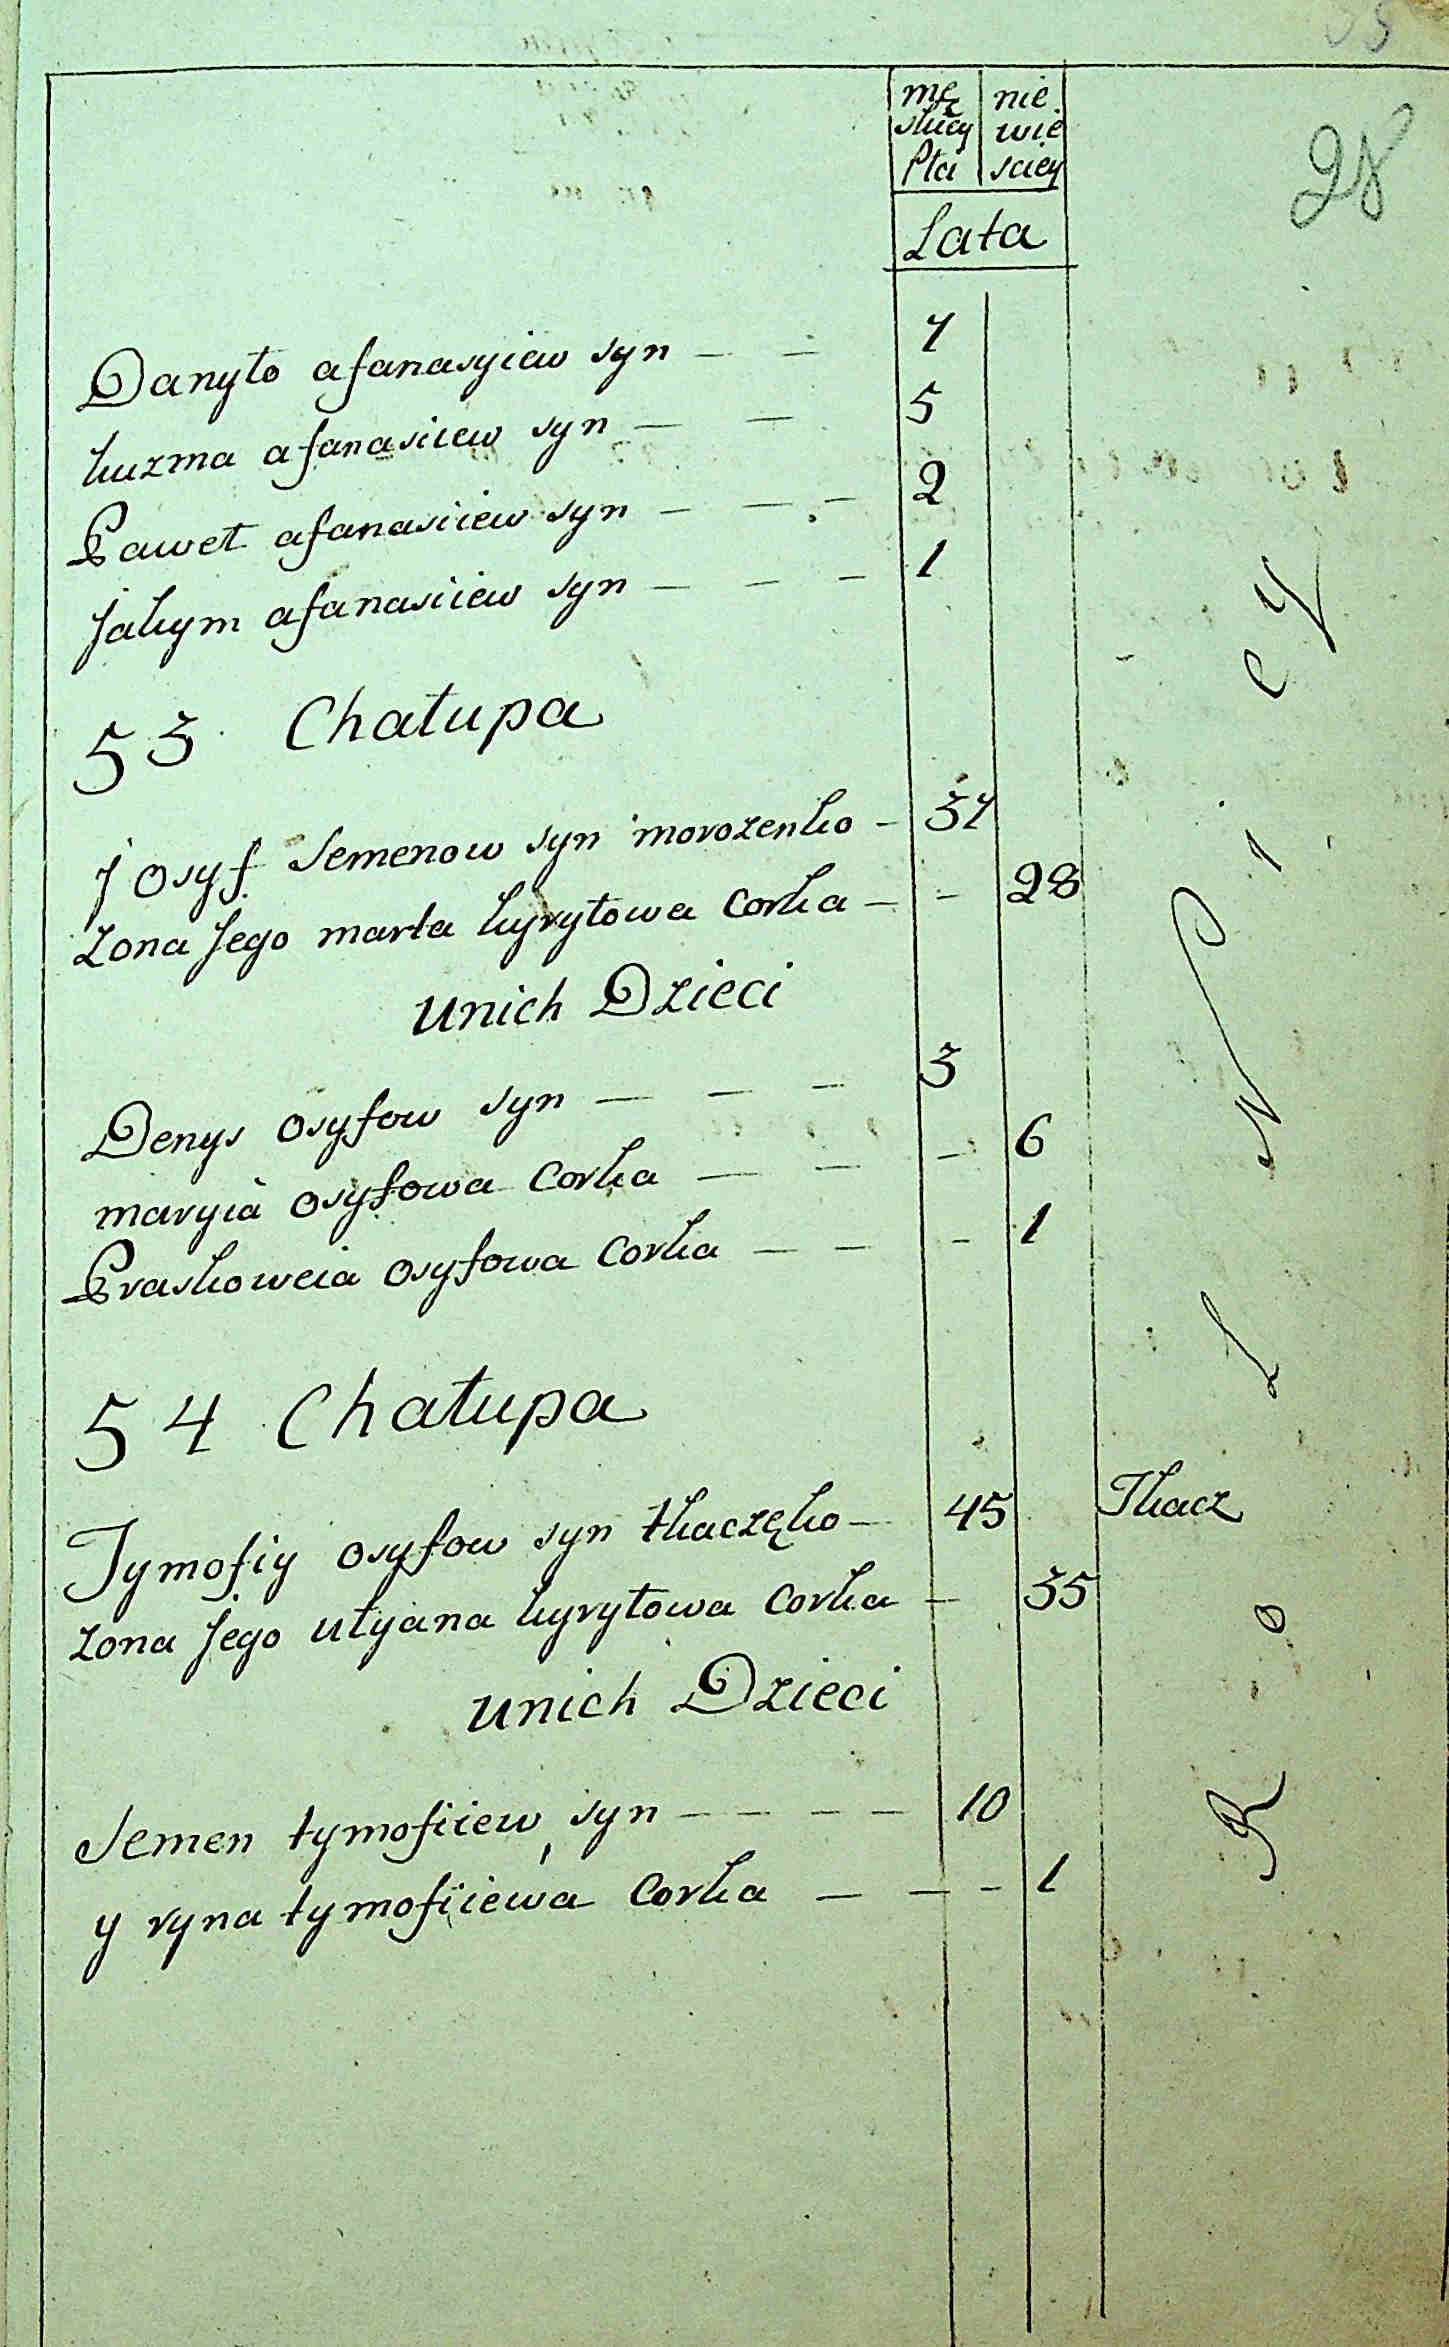 mę nie
skiey wie
Płci sciey
Lata
28
Danyło afanasyiew syn — — 7
kuzma afanasiiew syn — — 5
Paweł afanasiiew syn — — — 2
Jakym afanasiiew syn — — — 1
53 Chałupa
Josyf Semenow syn morozenko — 37
zona Jego marta kyryłowa Corka — — 28
unich Dzieci
Denys osyfow syn — — — 3
maryia osyfowa Corka — — — 6
Praskoweia osyfowa Corka — — — 1
54 Chałupa
Tymofiy osyfow syn tkaczęko — 45 Tkacz
zona Jego ulyana kyryłowa Corka — 35
unich Dzieci
Semen tymofiiew syn — — — — 10
yryna tymofiiewa Corka — — — 1